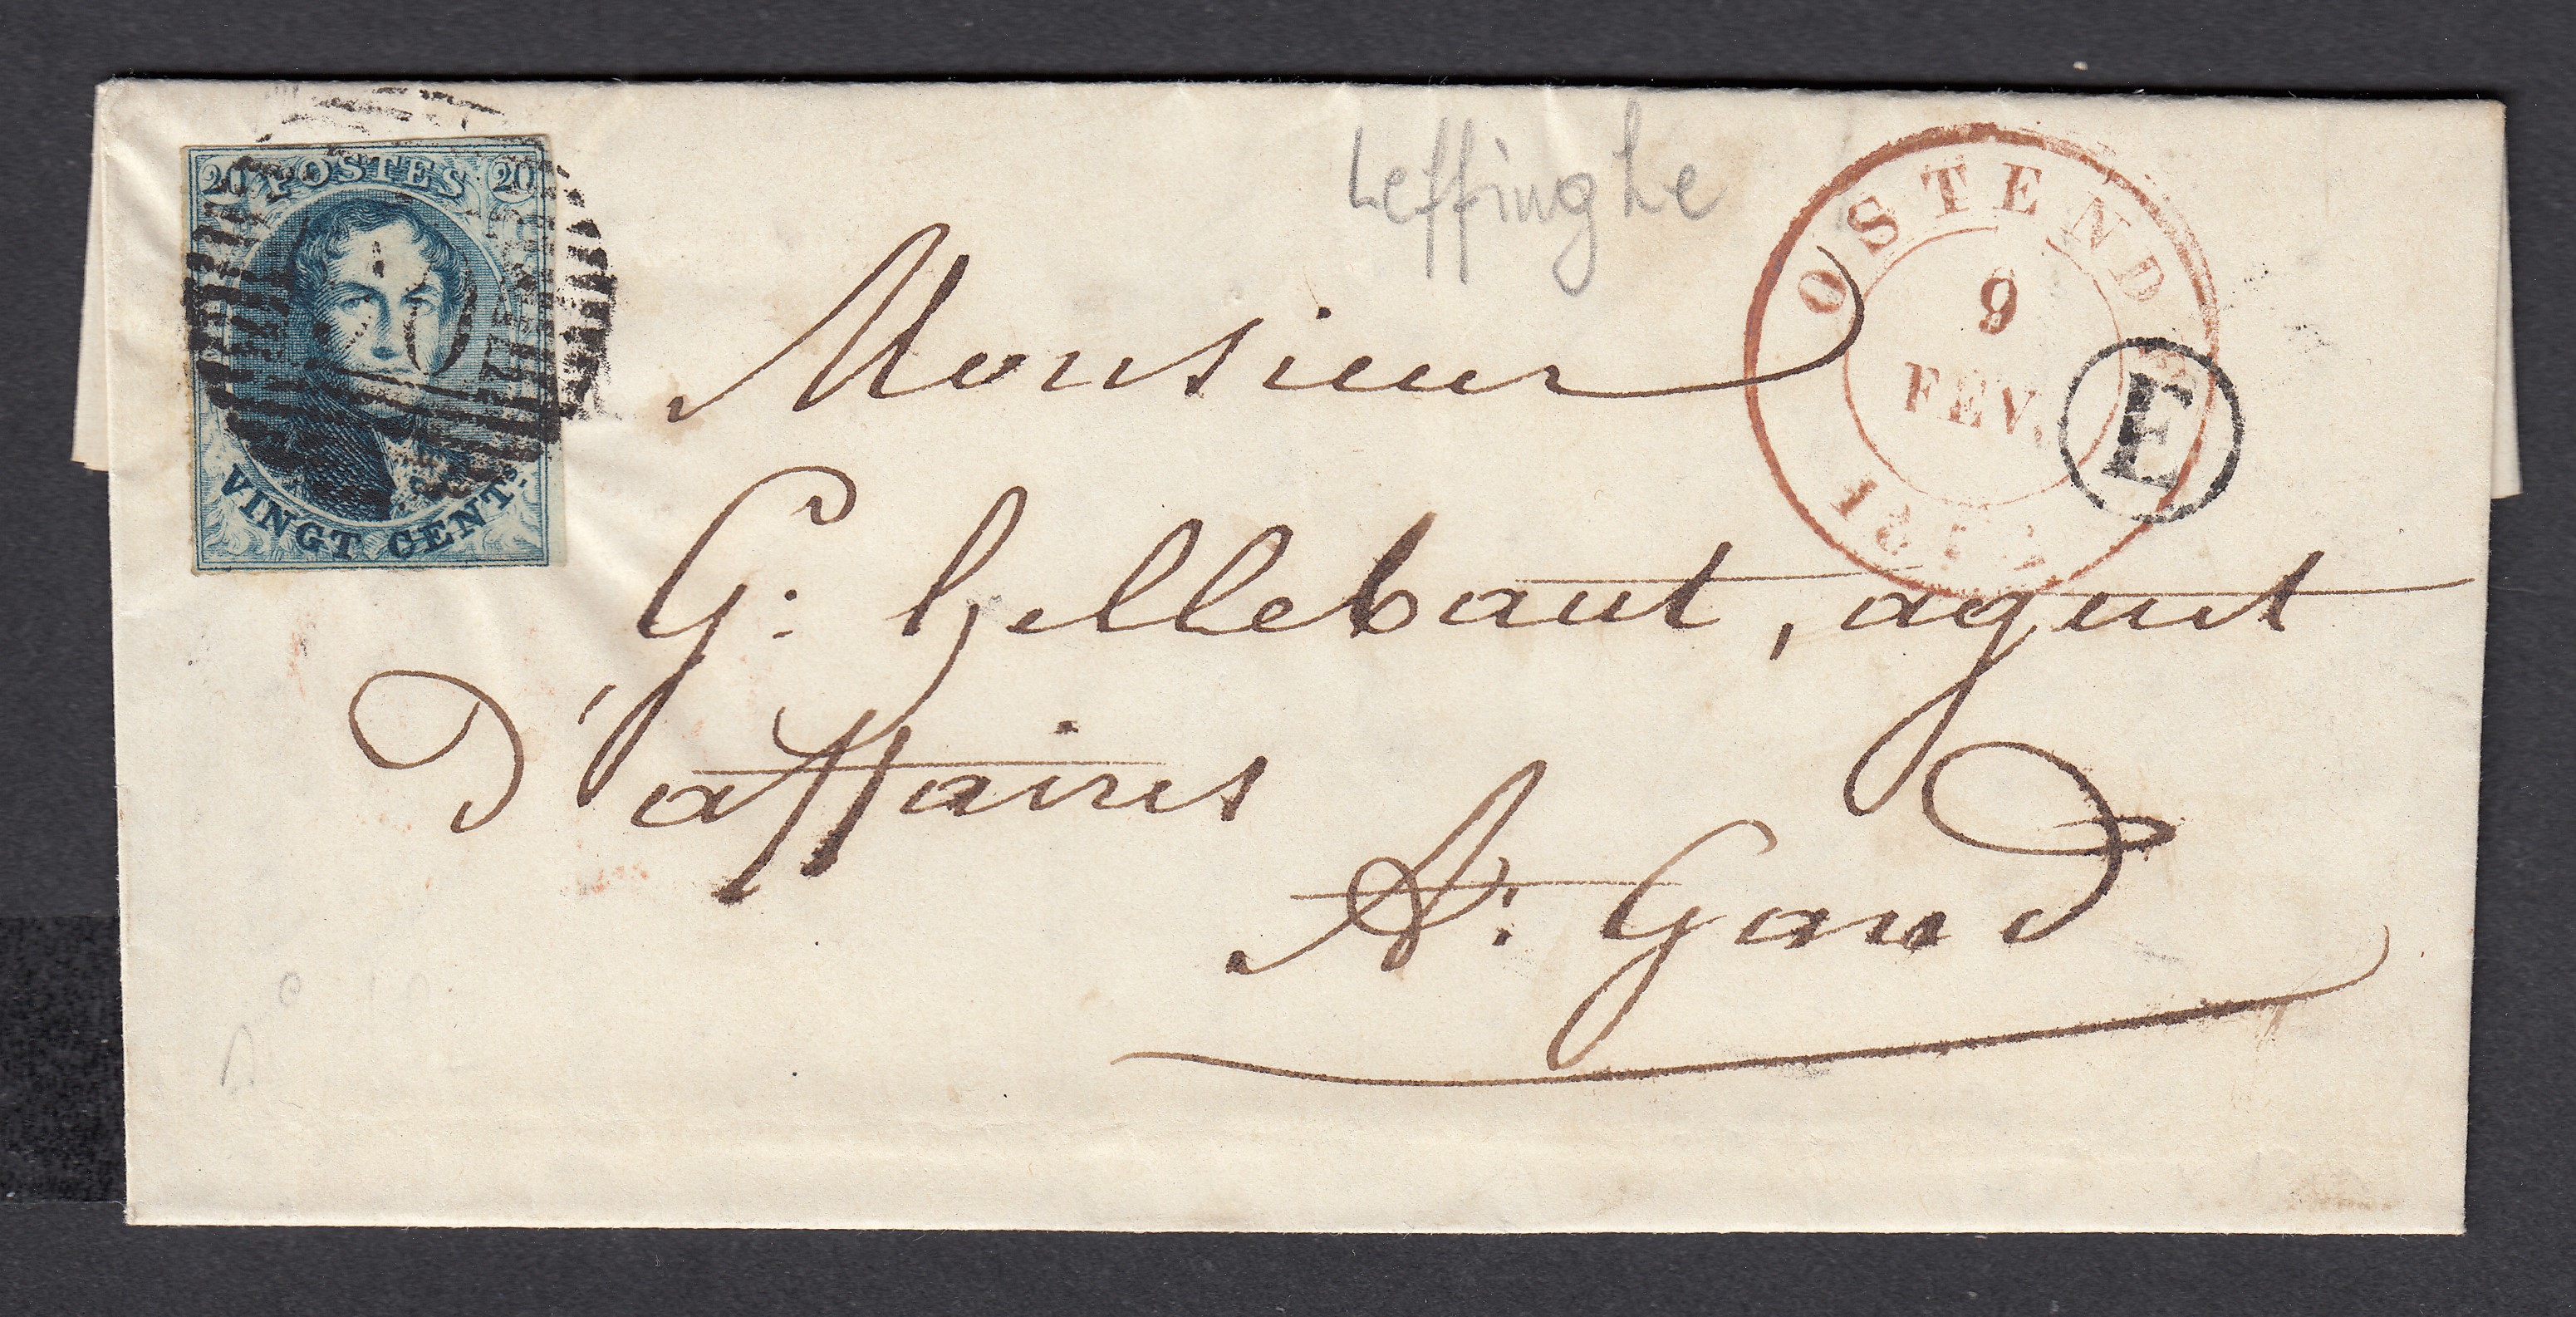 20 POSTES 20
VINGT CENTS.
Leffinghe
OSTENDE
9
FEV.
E
Monsieur
G: hellebaut, agent
D'affaires
A: Gand